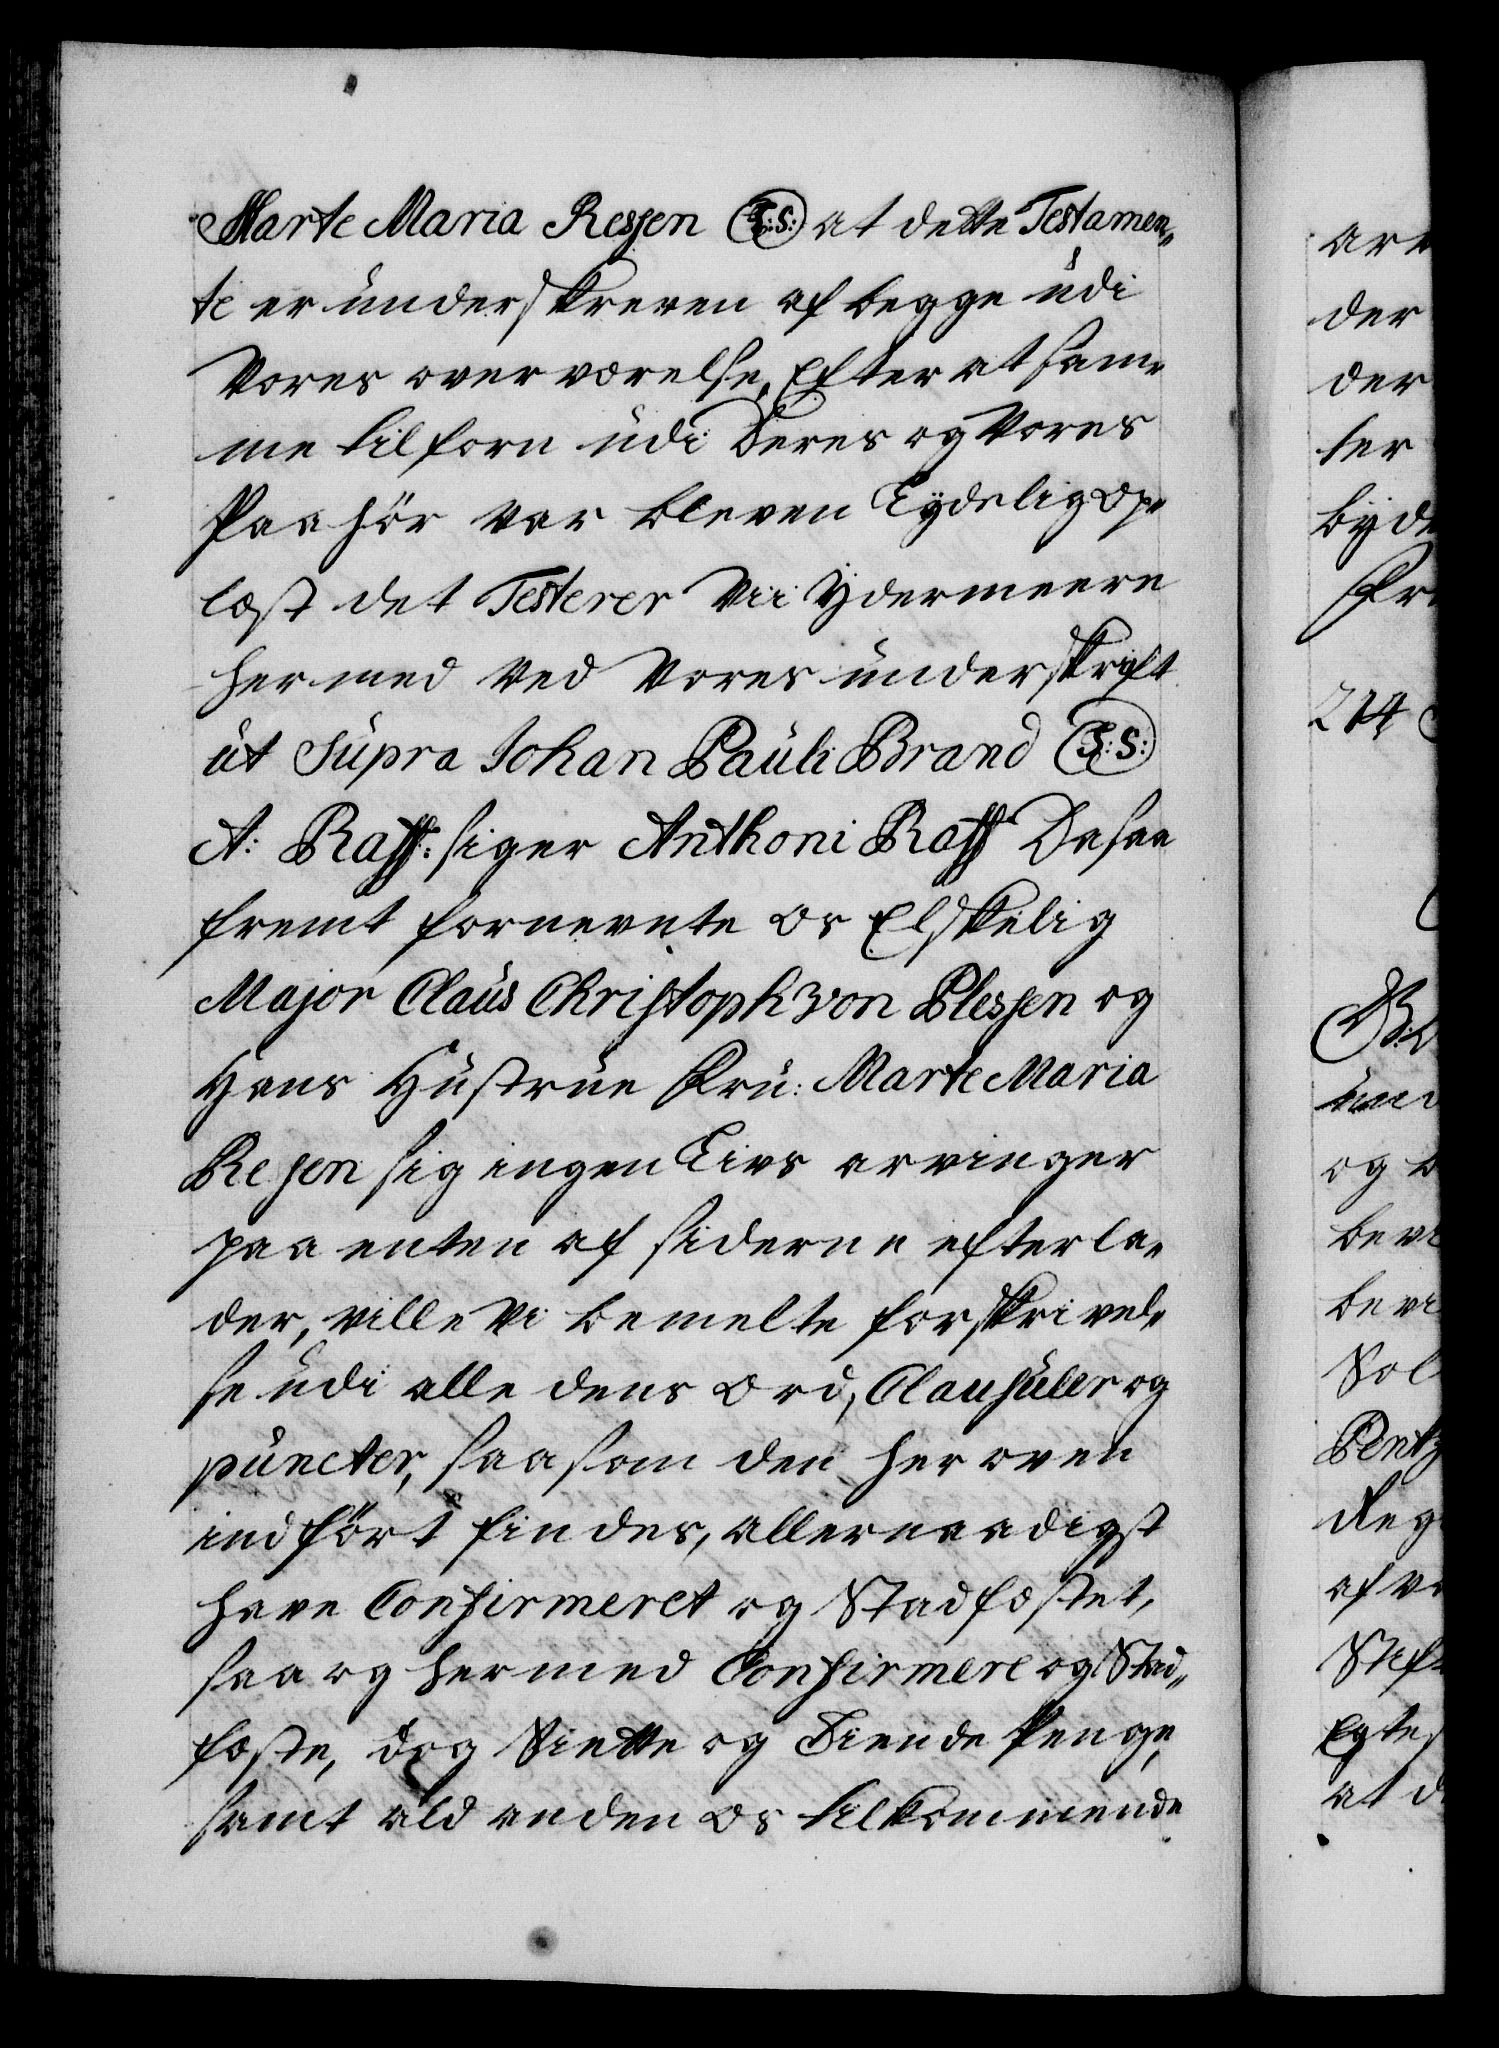 Marte Maria Ressen (L:S:) at dette Testamen„
te er underskreven af begge udi
Vores overværelse, Efter at sam„
me tilforn udi Deres og Vores
Paahör var bleven Lydelig Op„
læst det Testerer Vii Ydermeere
hermed Ved Vores underskrift
ut Supra Johan Pauli Brand (L:S:)
A: Raff: siger Anthoni Raff Dasaa
fremt fornevnte Os Elskelig
Major Claus Christoph von Plessen og
Hans Hustrue Fru: Marte Maria
Resen sig ingen Livs arvinger
paa enten af siderne efterla„
der, ville Vi bemelte forskrivel„
se udi alle dens Ord, Clausuler og
puncter, saasom den her oven
indfört findes, allernaadigst
have Confirmeret og Stadfæstet,
saa og hermed Confirmere og Stad„
fæste, dog Siette og Tiende Penge,
samt ald anden Os tilkommende
arv
der
der
ter
byde
214
og b
Sol
Pentz
af v
at d